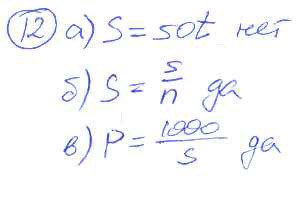 12 а) S = 50t нет
б) S = s/n да
в) P = 1000/S да